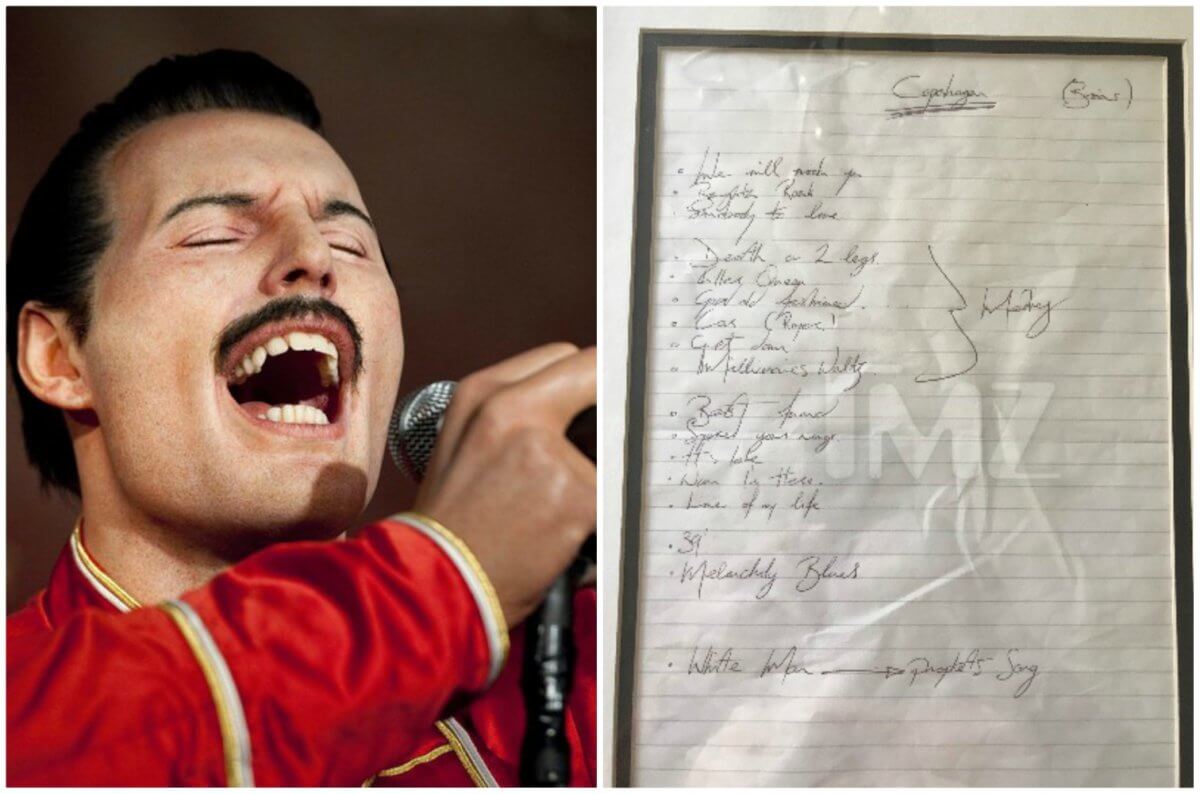 Copenhagen
We will rock you
Brighton Rock
Somebody to love
Death on 2 legs.
Killer Queen
Good old fashioned
Medley
Car (Roger!
Get down
Millionaires Waltz.
Best friend
Spread your wings.
It's late
Now I'm Here.
Love of my life
39'
Melancholy Blues
White Man → prophets Song
TMZ